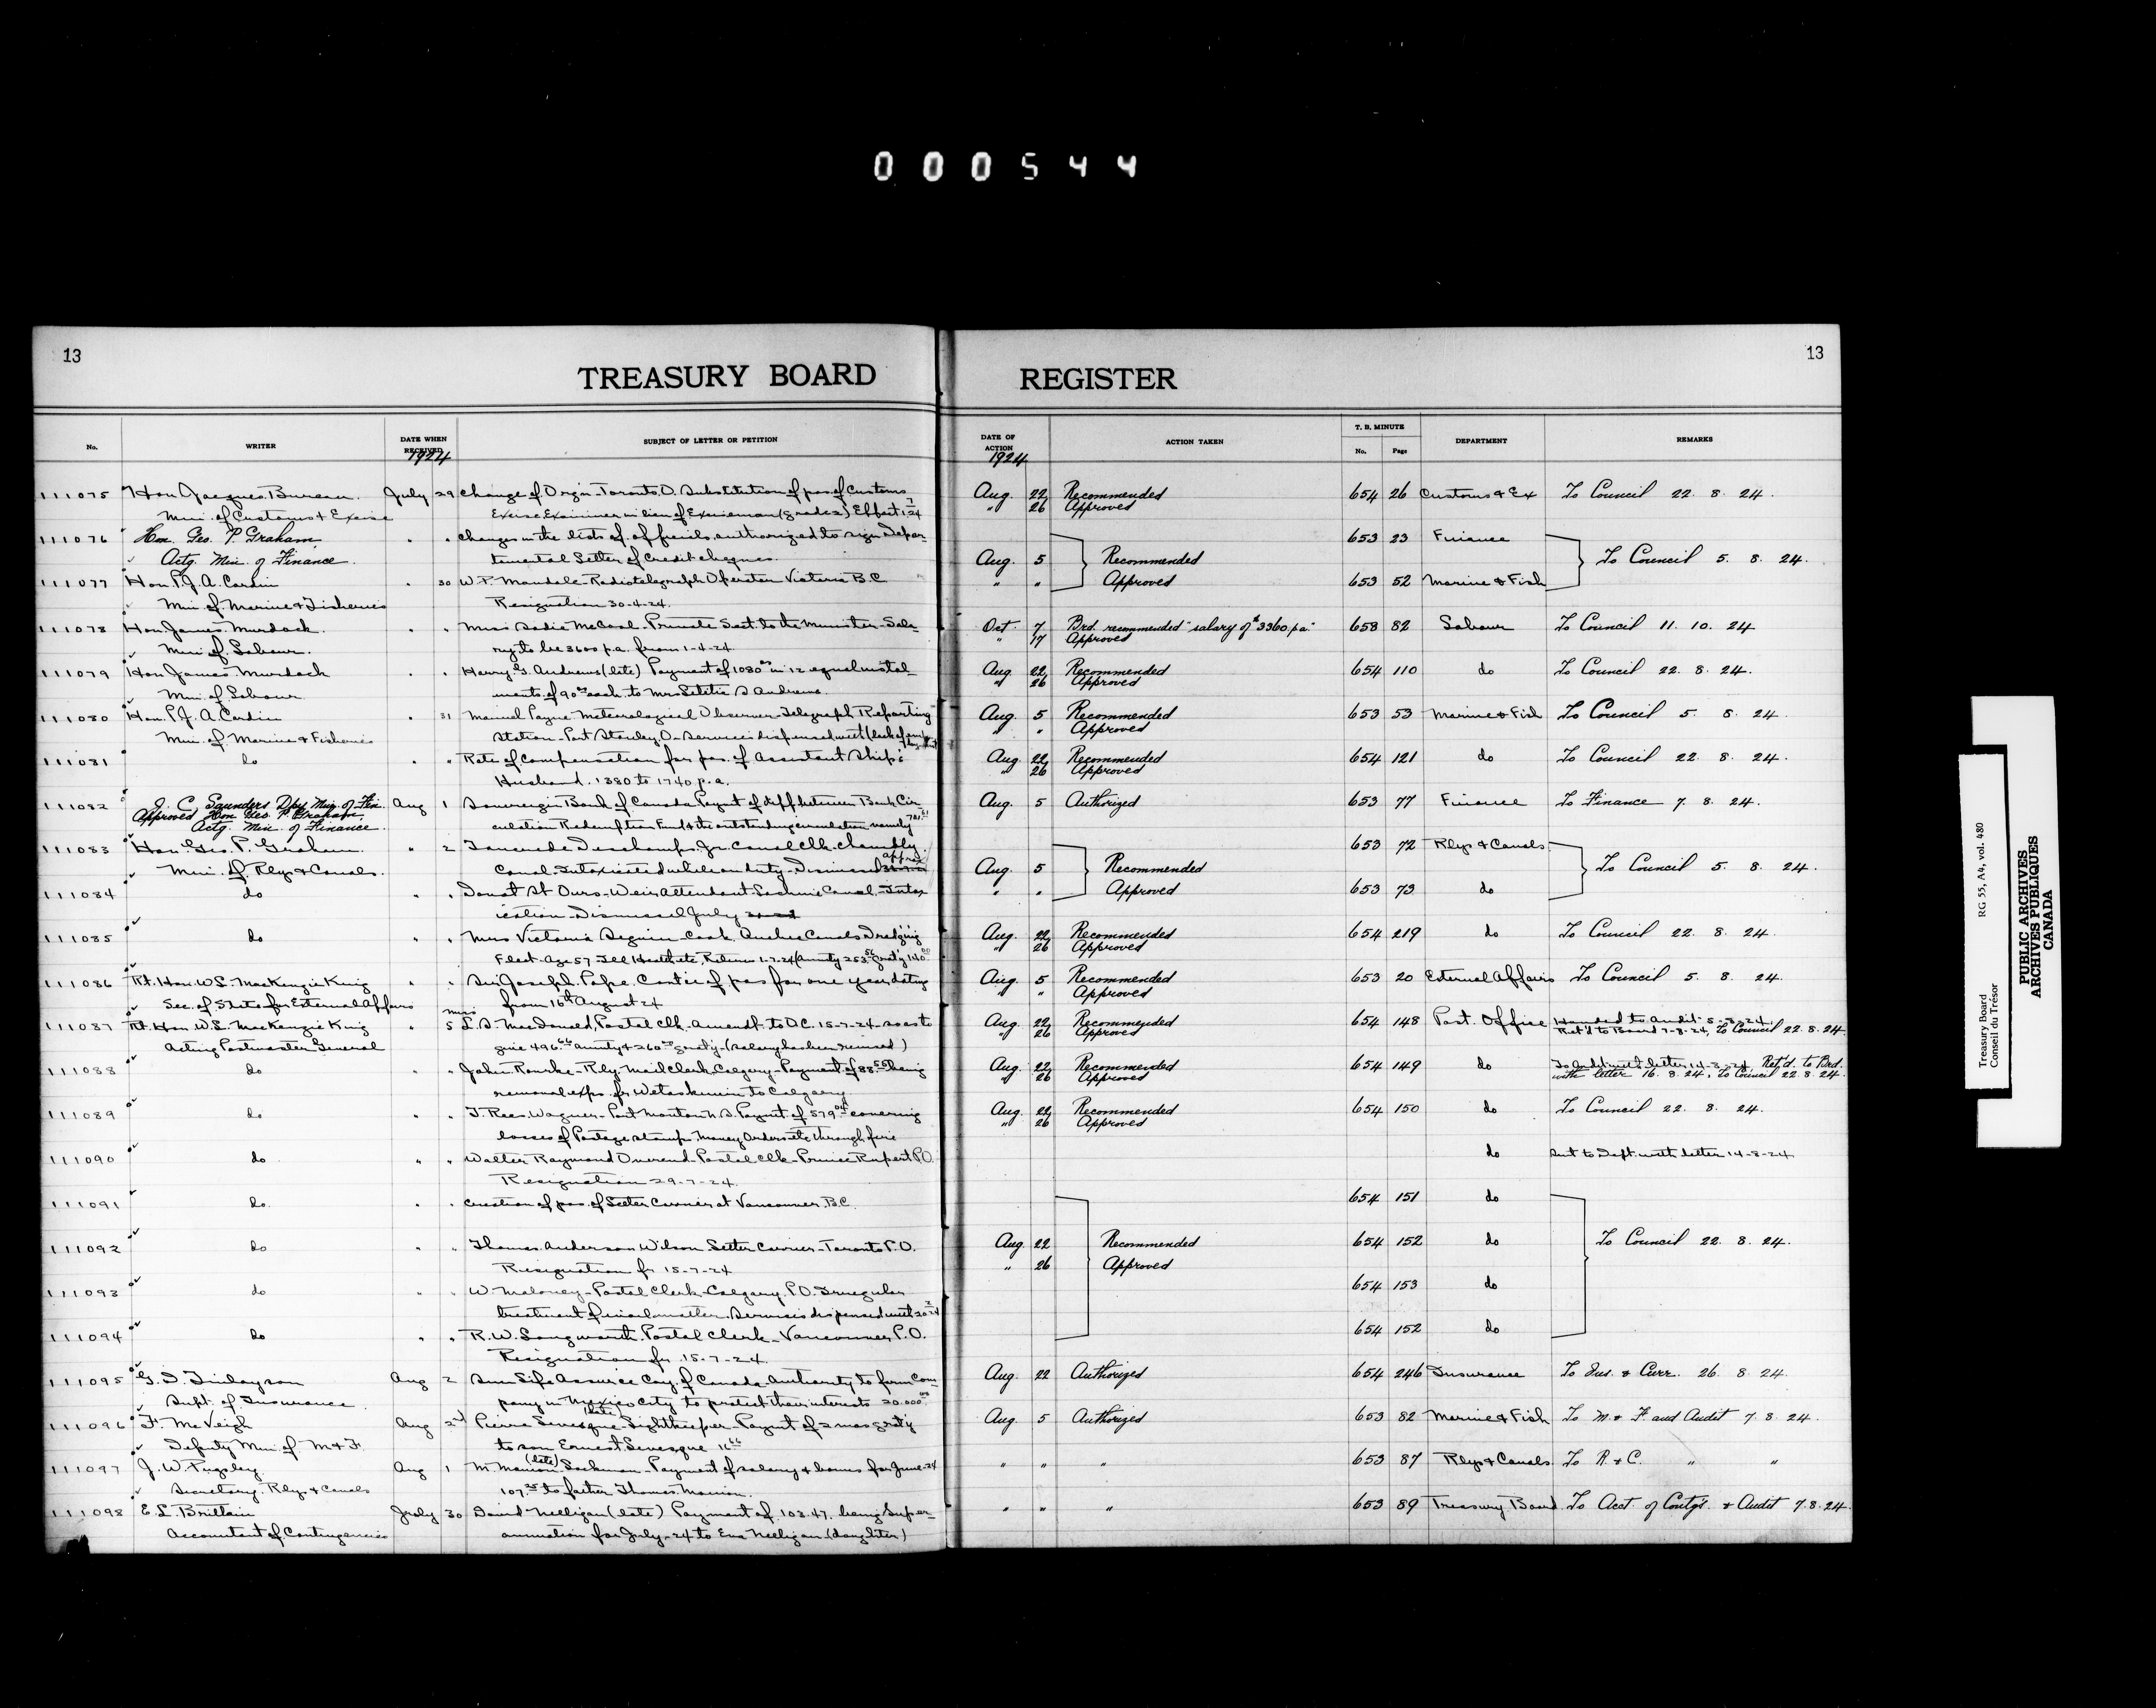 000544
13
13
TREASURY BOARD REGISTER
No.
WRITER
DATE WHEN RECEIVED
1924
SUBJECT OF LETTER OR PETITION
DATE OF ACTION
1924
ACTION TAKEN
T. B. MINUTE
No.
Page
DEPARTMENT
REMARKS
111075 Hon Jacques Bureau July 29 Change of Orgn - Toronto, O. Substitution of pos. of Customs Aug. 22 Recommended 654 26 Customs & Ex To Council 22. 8. 24.
Min. of Customs & Excise Excise Examiner in lieu of Exciseman (grade 2) Effect 1.7.24 " 26 Approved
111076 Hon. Geo. P. Graham " " Changes in the lists of officials authorized to sign Depar- 653 23 Finance
Actg. Min. of Finance. tmental Letter of Credit cheques. Aug. 5 Recommended To Council 5. 8. 24.
111077 Hon P.J.A. Cardin " 30 W.P. Mandale - Radiotelegraph Operator Victoria B.C. " " Approved 653 52 Marine & Fish
Min of Marine & Fisheries Resignation 30-4-24.
111078 Hon. James Murdock " " Miss Sadie McCool - Private Sect. to the Minister - Sala- Oct. 7 Brd. recommended "salary of $3360 p.a." 658 82 Labour To Council 11. 10. 24
Min of Labour. ry to be 3600 p.a. from 1-4-24 " 17 Approved
111079 Hon James Murdock " " Harry G. Andrews (late) Payment of 1080 00 in 12 equal instal- Aug. 22 Recommended 654 110 do To Council 22. 8. 24.
Min. of Labour ments of 90 00 each to Mrs Letitia S Andrews. " 26 Approved
111080 Hon. P.J.A. Cardin " 31 Manuel Payne Meteorological Observer - Telegraph Reporting Aug. 5 Recommended 653 53 Marine & Fish To Council 5. 8. 24.
Min. of Marine & Fisheries Station - Port Stanley O - Services dispensed with " " Approved
111081 do " " Rate of Compensation for pos. of Assistant Ship's Aug. 22 Recommended 654 121 do To Council 22. 8. 24.
Husband. 1380 to 1740 p.a. " 26 Approved
111082 J. C. Saunders Dpy Min. of Fin. Aug 1 Sovereign Bank of Canada Paymt of diff between Bank Cir Aug. 5 Authorized 653 77 Finance To Finance 7. 8. 24.
Approved Hon Geo. P. Graham culation Redemption Fund & the outstanding circulation namely
Actg. Min. of Finance.
111083 Hon. Geo P. Graham " 2 Tancrede Deschamps Jr. Canal Clk. Chambly 653 72 Rlys & Canals
Min. of Rlys & Canals. Canal. Intoxicated while on duty - Dismissed Aug. 5 Recommended To Council 5. 8. 24.
111084 do " " Donat St Ours - Weir Attendant Lachine Canal - Intox " " Approved 653 73 do
ication - Dismissed July
111085 do " " Mrs Victoria Seguin - Cook, Quebec Canals Dredging Aug. 22 Recommended 654 219 do To Council 22. 8. 24.
Fleet - Age 57 Ill Health etc, Retire 1-7-24 " 26 Approved
111086 Rt. Hon. W.L. MacKenzie King " " Sir Joseph Pope. Contce of pos for one year dating Aug. 5 Recommended 653 20 External Affairs To Council 5. 8. 24.
Sec. of State for External Affairs from 16th August 24 " " Approved
111087 Rt. Hon W.L. MacKenzie King " 5 Miss L.S. MacDonald, Postal Clk. Amendt. to O.C. 15-7-24 - so as to Aug. 22 Recommended 654 148 Post. Office Handed to Audit 5-8-24
Acting Postmaster General give 496 66 annuity & 260 gratuity (salary has been revised) " 26 Approved Ret'd to Board 7-8-24, To Council 22. 8. 24.
111088 do " " John Rourke - Rly. Mail Clerk, Calgary - Payment of 88 50 being Aug. 22 Recommended 654 149 do To Audit with letter 14-8-24 Ret'd. to Brd.
removal exps. fr Wetaskiwin to Calgary " 26 Approved with letter 16. 8. 24, To Council 22. 8. 24.
111089 do " " T. Rees Wagner - Port Morton N.S. Paymt of 579 covering Aug. 22 Recommended 654 150 do To Council 22. 8. 24.
losses of Postage stamps, Money Orders etc through fire " 26 Approved
111090 do " " Walter Raymond Overend - Postal Clk - Prince Rupert P.O. do Sent to Dept. with letter 14-8-24.
Resignation 29-7-24.
111091 do " " Creation of pos. of Letter Carrier at Vancouver, B.C. 654 151 do
111092 do " " Thomas Anderson Wilson Letter Carrier - Toronto P.O. Aug. 22 Recommended 654 152 do To Council 22. 8. 24.
Resignation fr 15-7-24 " 26 Approved
111093 do " " W. Maloney - Postal Clerk - Calgary. P.O. Irregular 654 153 do
treatment of mail matter. Services dispensed with
111094 do " " R.W. Langworth. Postal Clerk - Vancouver, P.O. 654 152 do
Resignation fr. 15-7-24.
111095 G. D. Finlayson Aug 2 Sun Life Assurce Coy. of Canada - Authority to form Com- Aug. 22 Authorized 654 246 Insurance To Ins. & Curr. 26. 8. 24.
Supt. of Insurance. pany in Mexico City to protect their interests 20.000 00
111096 F. McVeigh Aug 2 Pierre Levesque (late) Lightkeeper Paymt of 2 mos graty Aug. 5 Authorized 653 82 Marine & Fish To M. & F. and Audit 7. 8. 24.
Deputy Min of M & F. to son Ernest Levesque 16 66
111097 J. W. Pugsley Aug 1 M. Mannion (late) Lockman - Payment of salary & bonus for June-24 " " " 653 87 Rlys & Canals To R. & C. " "
Secretary. Rlys & Canals 107 to father Thomas Mannion.
111098 E. L. Brittain July 30 David Nelligan (late) Payment of 103.47. being Super- " " " 653 89 Treasury Board To Acct. of Contg's. & Audit 7.8.24.
Accountant of Contingencies annuation for July-24 to Eva Nelligan (daughter)
Treasury Board RG 55, A4, vol. 480
Conseil du Trésor
PUBLIC ARCHIVES
ARCHIVES PUBLIQUES
CANADA